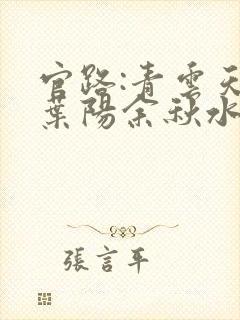 官路:青雲天
葉陽余秋水
張言平